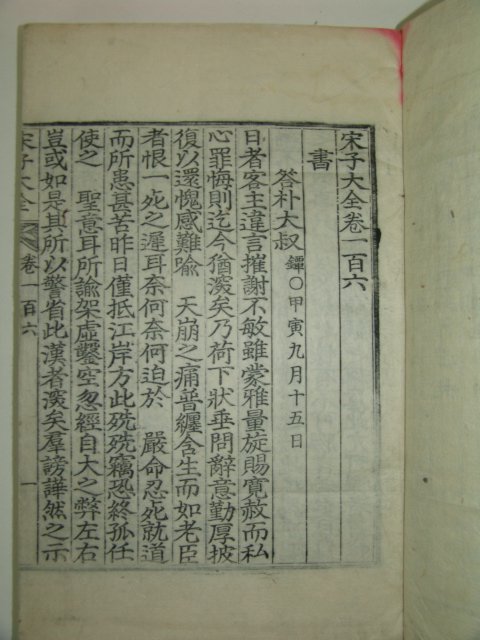 宋子大全卷一百六
書
答朴大叔 鐔○甲寅九月十五日
日者客主違言摧謝不敏雖蒙雅量旋賜寬赦而私
心罪悔則迄今猶深矣乃荷下狀垂問辭意勤厚披
復以還愧感難喩 天崩之痛普纏含生而如老臣
者恨一死之遲耳奈何奈何迫於 嚴命忍死就道
而所患甚苦昨日僅抵江岸方此殘殘竊恐終孤任
使之 聖意耳所諭架虛鑿空忽經自大之弊左右
豈或如是其所以警省此漢者深矣羣謗譁然之示
宋子大全 卷一百六 一